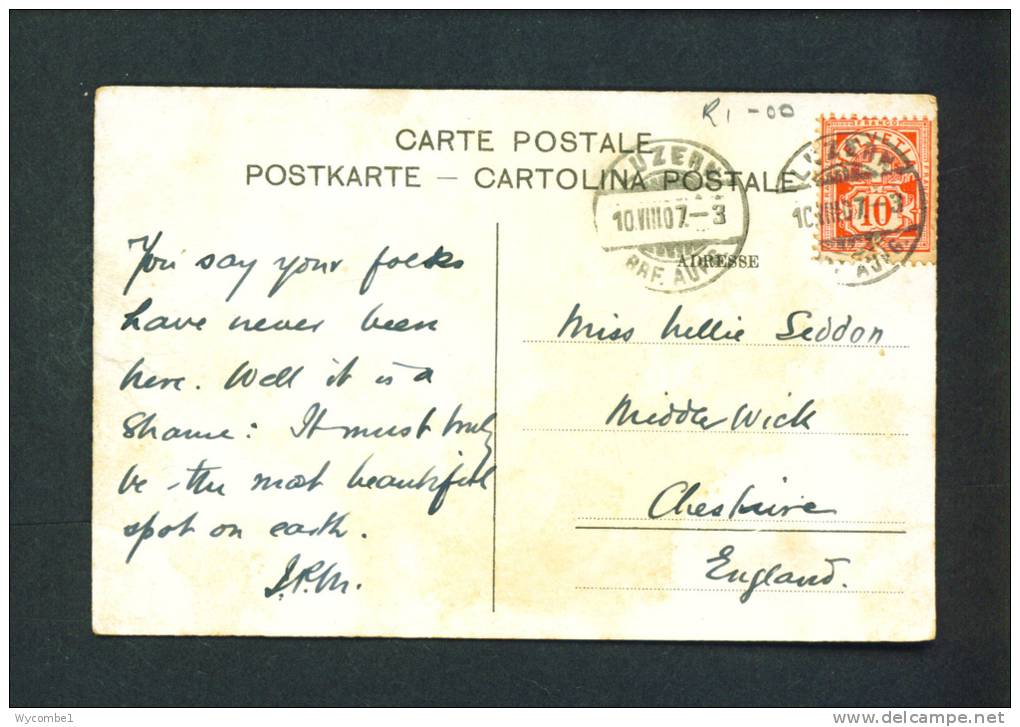 R1-00
CARTE POSTALE
POSTKARTE — CARTOLINA POSTALE
LUZERN
10.VIII07.-3
BRF. AUFG
LUZERN
10.VIII07.-3
BRF. AUFG
FRANCO
HELVETIA
10
ADRESSE
You say your folks
have never been
here. Well it is a
Shame: It must truly
be the most beautiful
spot on earth.
J.R.M.
Miss Nellie Seddon
Middle Wick
Cheshire
England.
Wycombe1
www.delcampe.net